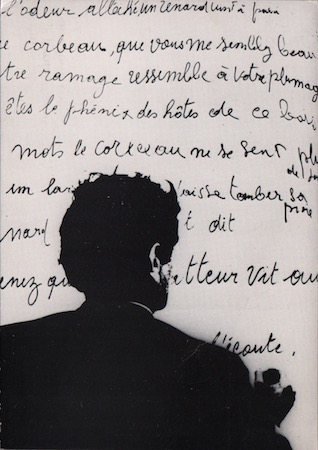 l'odeur alléché un renard vint à peu
ce corbeau, que vous me semblez beau
tre ramage ressemble à votre plumag
êtes le phénix des hôtes de ce bois
mots le corbeau ne se sent plus
de
un lar laisse tomber sa
proie
nard t dit
enez qu tteur vit au
l'écoute.